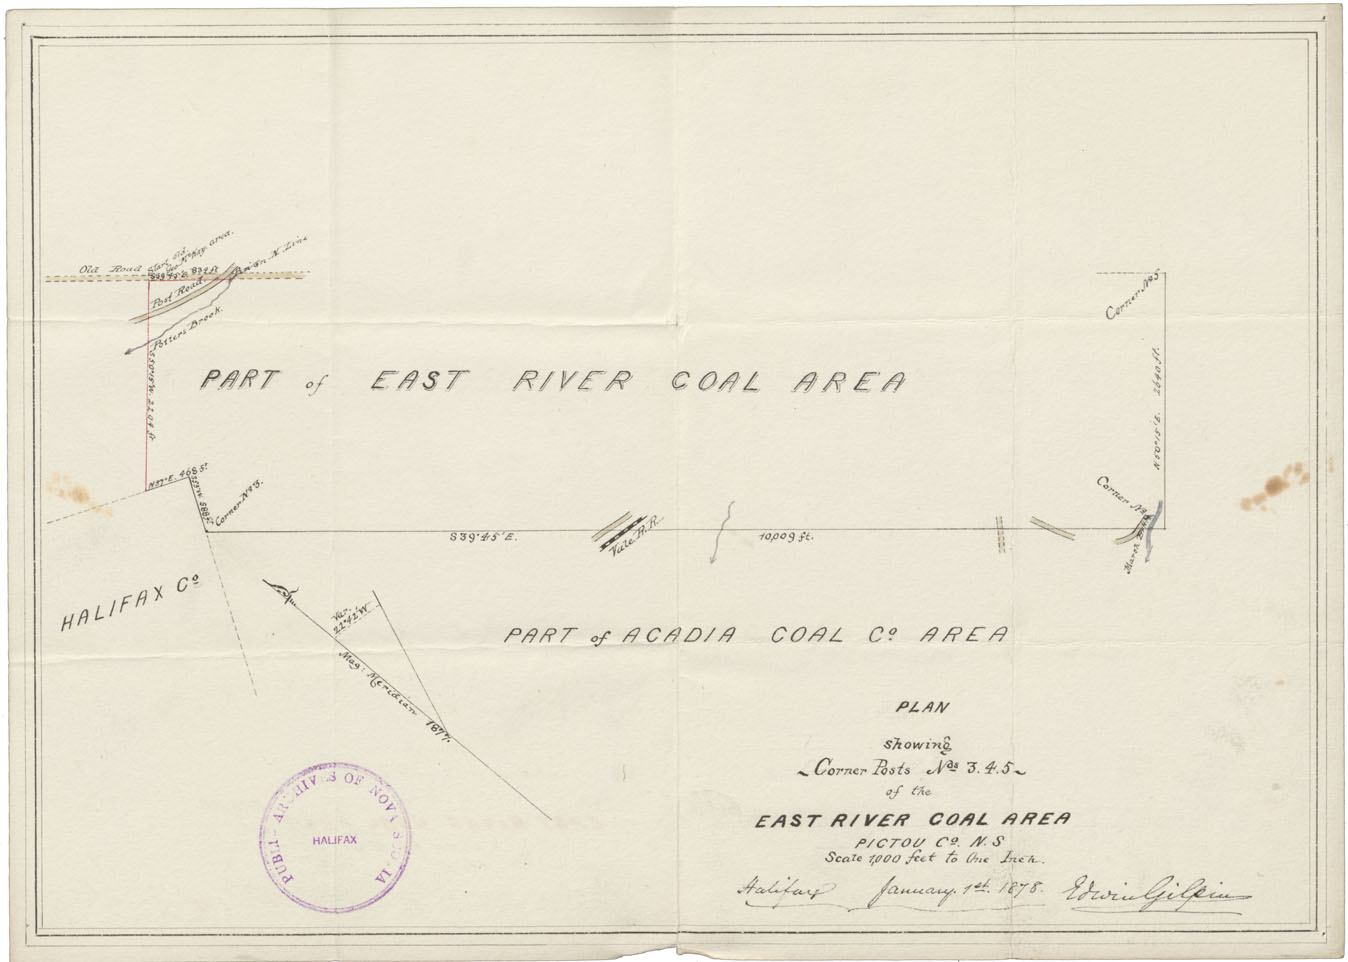 Old Road
Start Old
Geo McKay area.
S39°45'E. 834 ft
N. Line
Post Road.
Potters Brook.
S50°15'W. 2204 ft
PART of EAST RIVER COAL AREA
Corner No. 5
N50°15'E. 2640 ft.
N57°E. 468 ft
588 ft
Corner No. 3.
S39°45'E.
Vale R.R.
10,009 ft.
Corner No. 4
Marsh Brook
HALIFAX Co
Var.
22°42'W
Mag: Meridian 1877.
PART of ACADIA COAL Co AREA
PLAN
showing
~ Corner Posts Nos 3.4.5 ~
of the
EAST RIVER COAL AREA
PICTOU Co. N.S
Scale 1,000 feet to One Inch.
Halifax January. 1st. 1878. Edwin Gilpin
PUBLIC ARCHIVES OF NOVA SCOTIA
HALIFAX